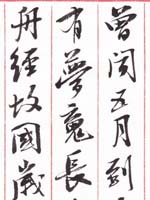 曾闻五月到
有夢魂長
舟經故國歲